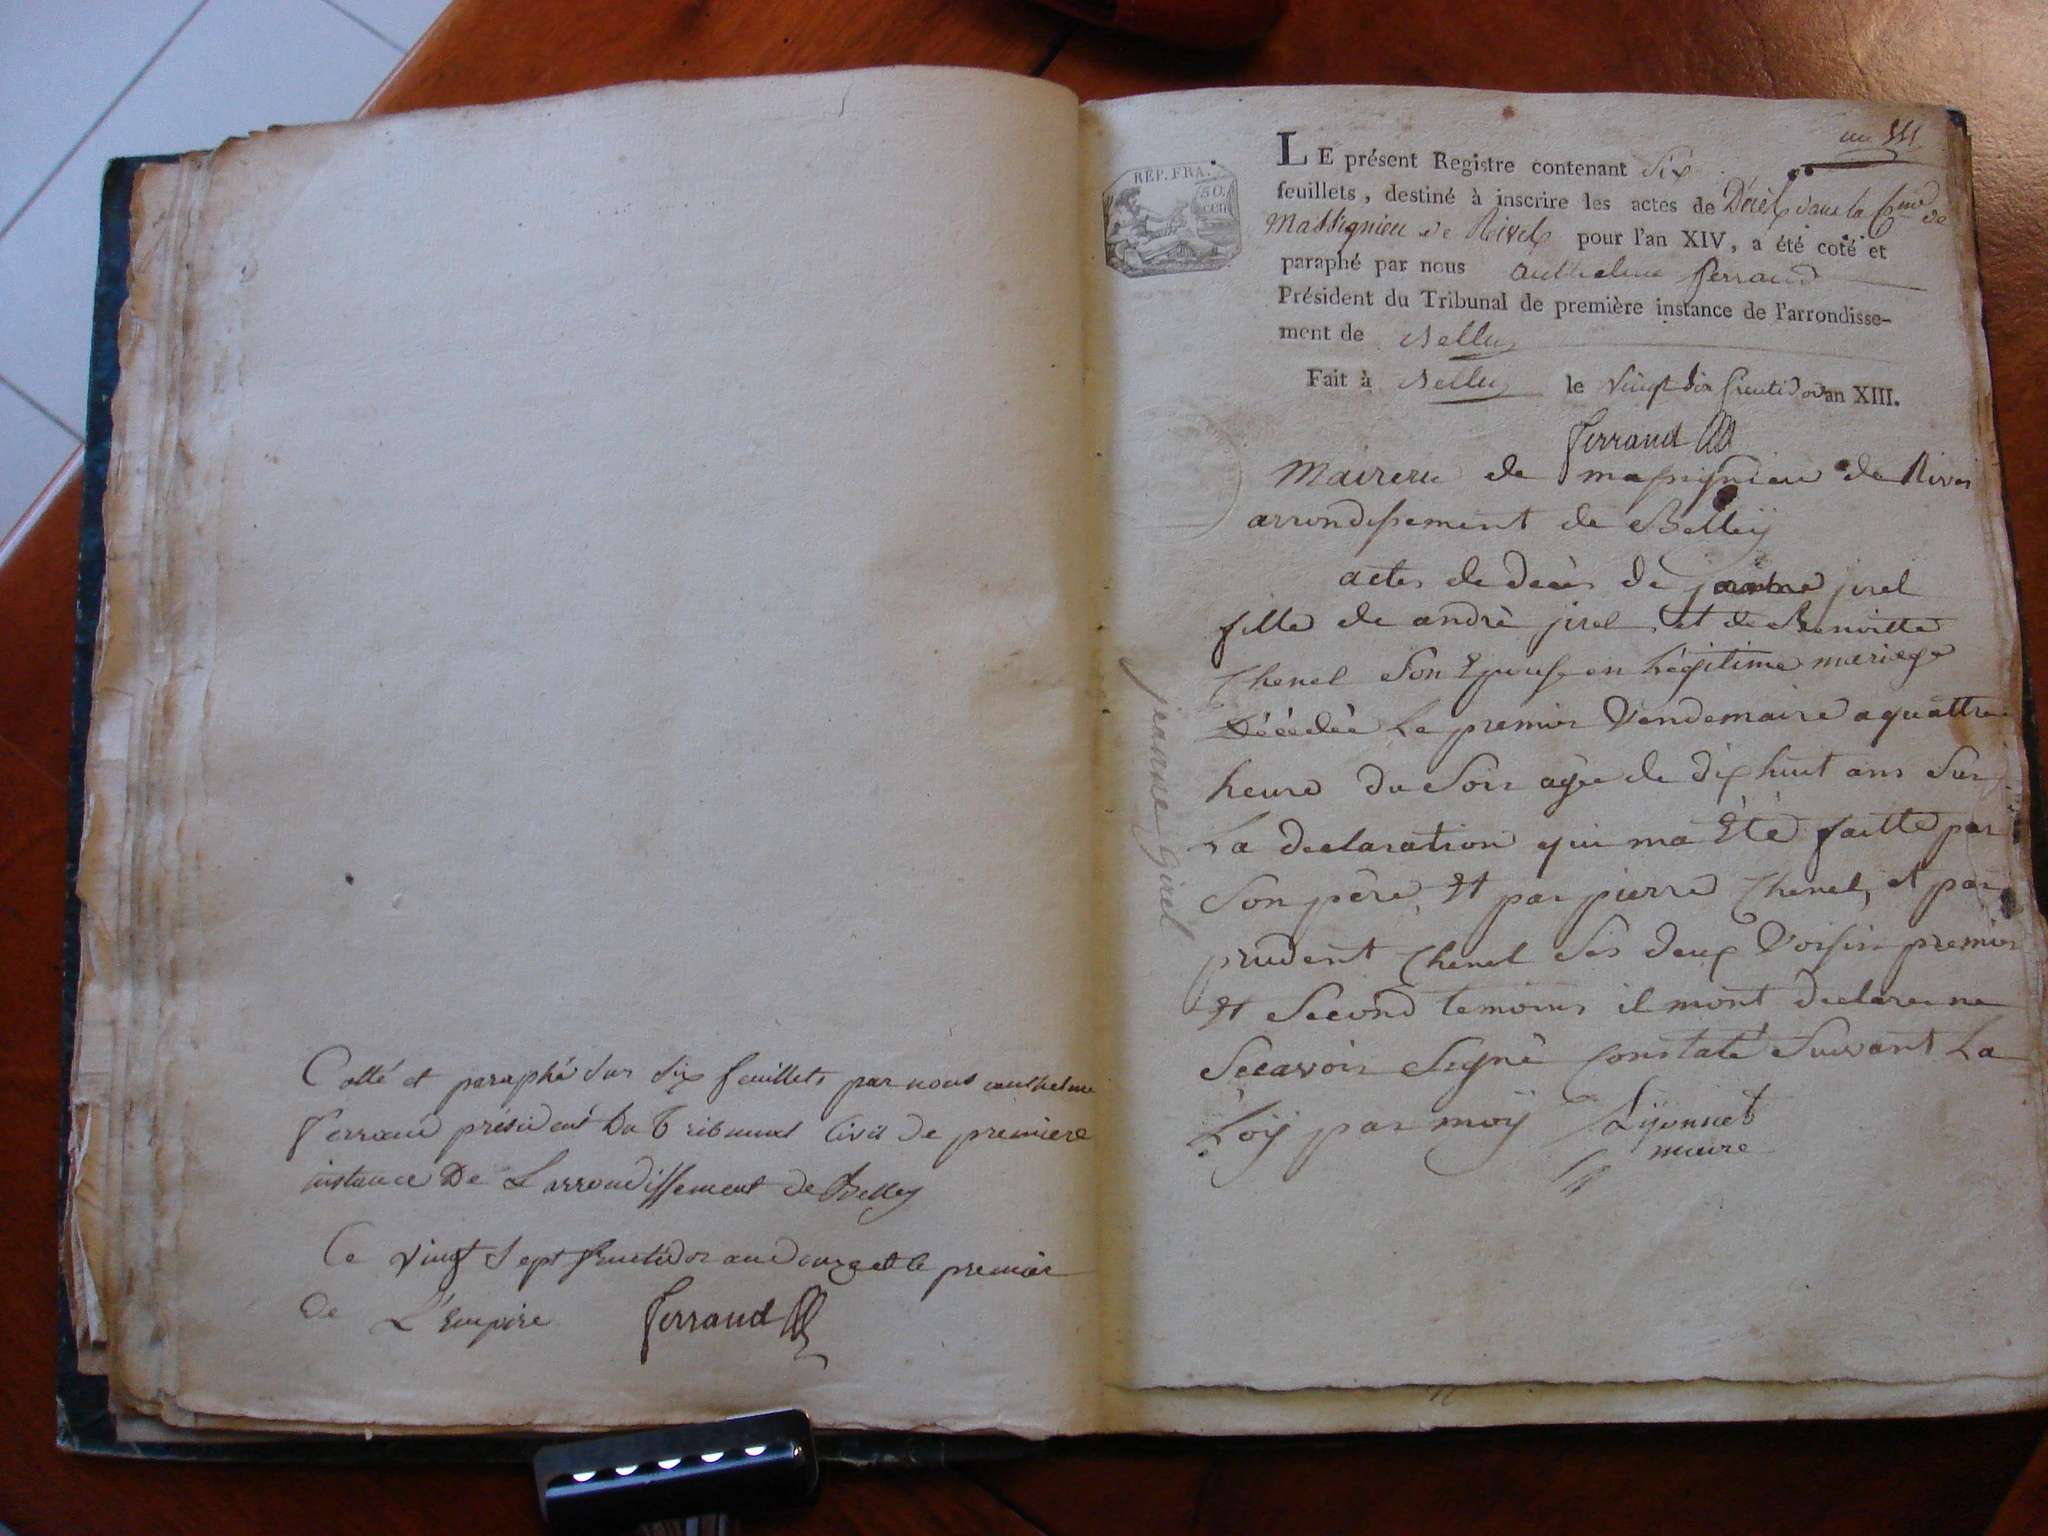 Cotté et paraphé sur six feuillets par nous anthelme
Ferrand président Du Tribunal Civil de premiere
instance De L'arrondissement de Belley
Ce vingt sept fructidor an douze et le premier
de L'Empire Ferrand
un
RÉP. FRA.
50.
cen
LE présent Registre contenant six
feuillets, destiné à inscrire les actes de Décès dans la Cne de
Massignieu de Rives pour l'an XIV, a été coté et
paraphé par nous anthelme ferrand
Président du Tribunal de première instance de l'arrondisse-
ment de Belley
Fait à Belley le vingt six fructidor an XIII.
Ferrand
Maireru de massignieu de Rives
arrondissement de Belley
actes de deces de jeanne jirel
fille de andrè jirel et de Benoitte
Chenel son Epouse en Légitime mariege
Décédée Le premier Vendemaire a quattre
heure du Soir agée de dix huit ans Sur
La declaration qui ma Eté faitte par
Son père, Et par pierre Chenel, et par
prudent Chenel Ses deux Voisin premier
Et Second temoins il mont declare ne
Secavoir Signè Constaté Suivant La
Loÿ par moÿ Lÿonnet
maire
jeanne Girel